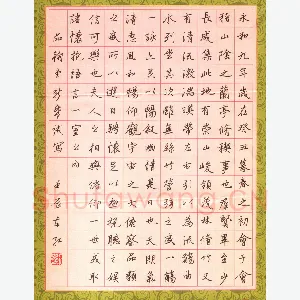 永和九年歲在癸丑暮春之初會于會
稽山陰之蘭亭修禊事也群賢畢至少
長咸集此地有崇山峻領茂林脩竹又
有清流激湍映帶左右引以為流觴曲
水列坐其次雖無絲竹管弦之盛一觴
一詠亦足以暢敘幽情是日也天朗氣
清惠風和暢仰觀宇宙之大俯察品類
之盛所以遊目騁懷足以極視聽之娛
信可樂也夫人之相與俯仰一世或取
諸懷抱悟言一室之內